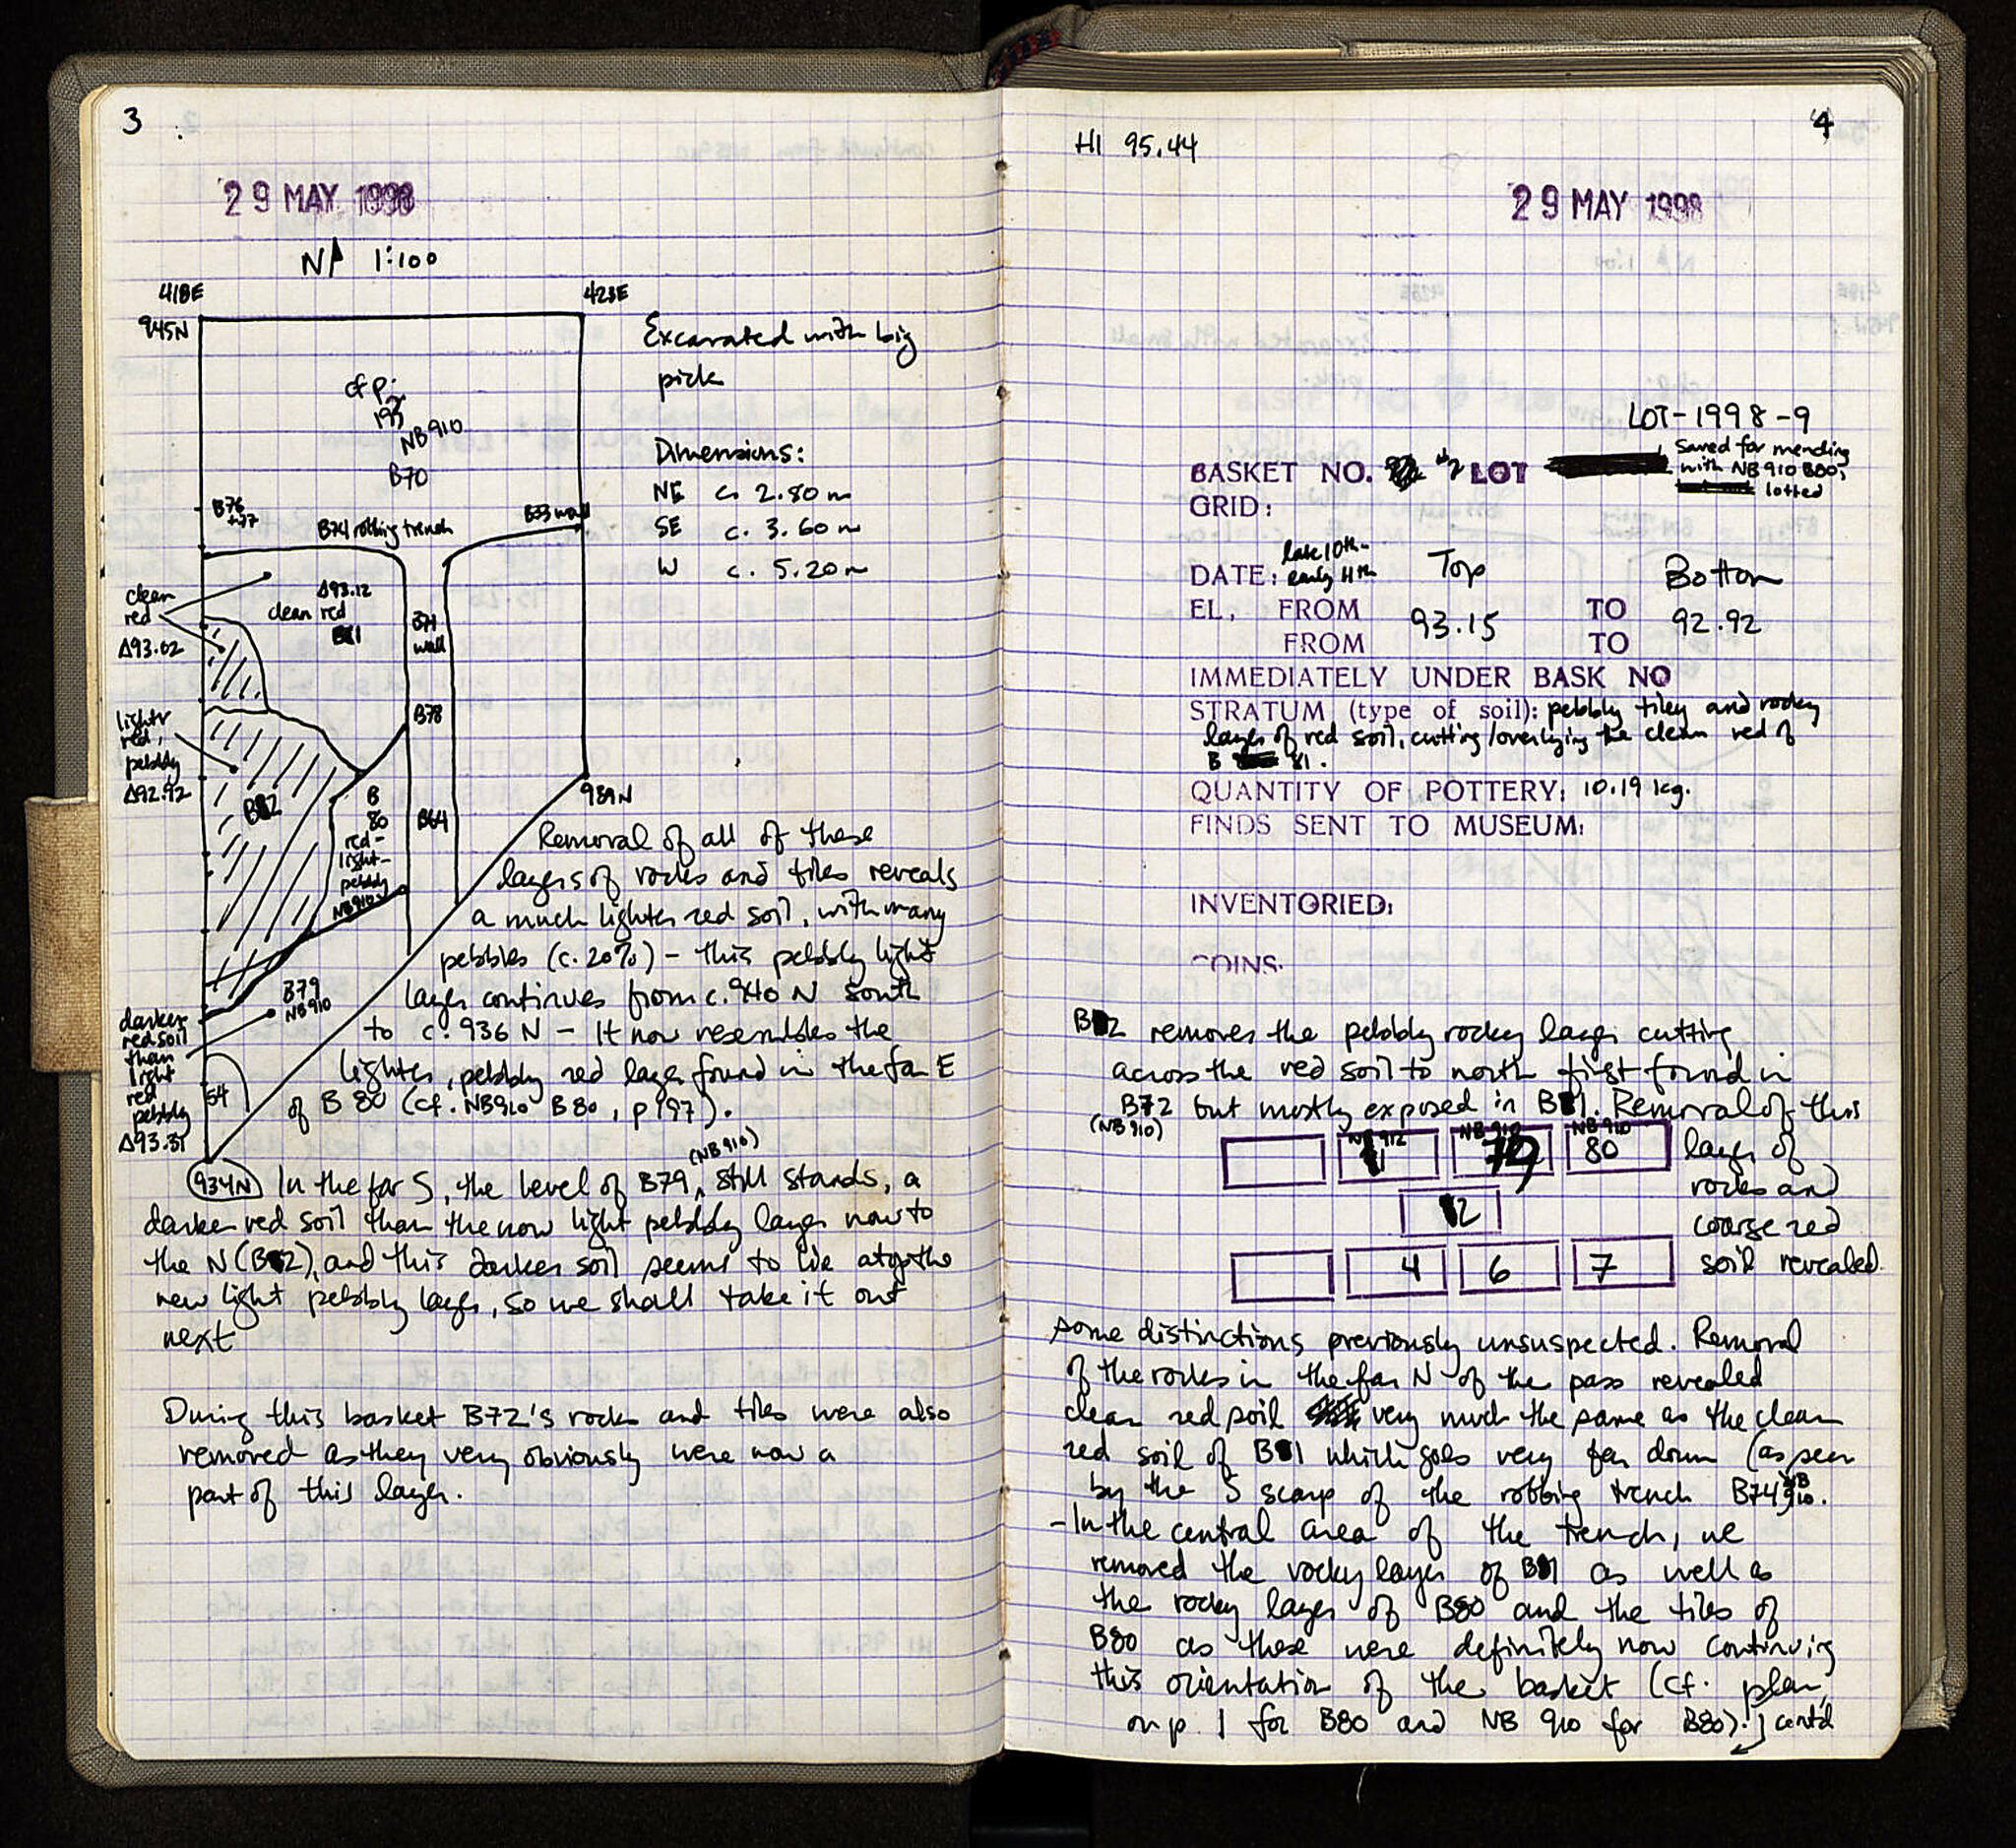 3
29 MAY 1998
N 1:100
418E
423E
945N
Excavated with big
pick
cf p.
197
NB910
B70
Dimensions:
NE c. 2.80 m
SE c. 3.60 m
W c. 5.20 m
B76
+77
B74 robbing trench
B33 wall
clean
red
Δ93.02
Δ93.12
clean red
B1
B71
wall
B78
lighter
red,
pebbly
Δ92.92
B2
B
80
red-
light-
pebbly
NB910
B64
939N
Removal of all of these
layers of rocks and tiles reveals
a much lighter red soil, with many
pebbles (c. 20%) - this pebbly light
layer continues from c. 940 N south
to c. 936 N - It now resembles the
lighter, pebbly red layer found in the far E
of B 80 (cf. NB910 B80, p 197).
B79
NB910
darker
red soil
than
light
red
pebbly
Δ93.31
54
934N
In the far S, the level of B79 (NB910) still stands, a
darker red soil than the now light pebbly layer now to
the N (B2), and this darker soil seems to lie atop the
new light pebbly layer, so we shall take it out
next
During this basket B72's rocks and tiles were also
removed as they very obviously were now a
part of this layer.
4
HI 95.44
29 MAY 1998
LOT-1998-9
Saved for mending
with NB910 B80,
lotted
BASKET NO. #2 LOT
GRID:
DATE: late 10th-
early 11th
Top
Bottom
EL, FROM 93.15 TO 92.92
FROM TO
IMMEDIATELY UNDER BASK NO
STRATUM (type of soil): pebbly tiley and rocky
layer of red soil, cutting/overlying the clean red of
B 81.
QUANTITY OF POTTERY: 10.19 kg.
FINDS SENT TO MUSEUM:
INVENTORIED:
COINS:
B2 removes the pebbly rocky layer cutting
across the red soil to north first found in
B72 but mostly exposed in B1. Removal of this
(NB 910)
NB 912
NB 910
NB 910
1
79
80
layer of
rocks and
2
coarse red
4
6
7
soil revealed
some distinctions previously unsuspected. Removal
of the rocks in the far N of the pass revealed
clean red soil very much the same as the clean
red soil of B1 which goes very far down (as seen
by the S scarp of the robbing trench B74 NB
910.
- In the central area of the trench, we
removed the rocky layer of B1 as well as
the rocky layer of B80 and the tiles of
B80 as these were definitely now continuing
this orientation of the basket (cf. plan
on p. 1 for B80 and NB 910 for B80). cont'd